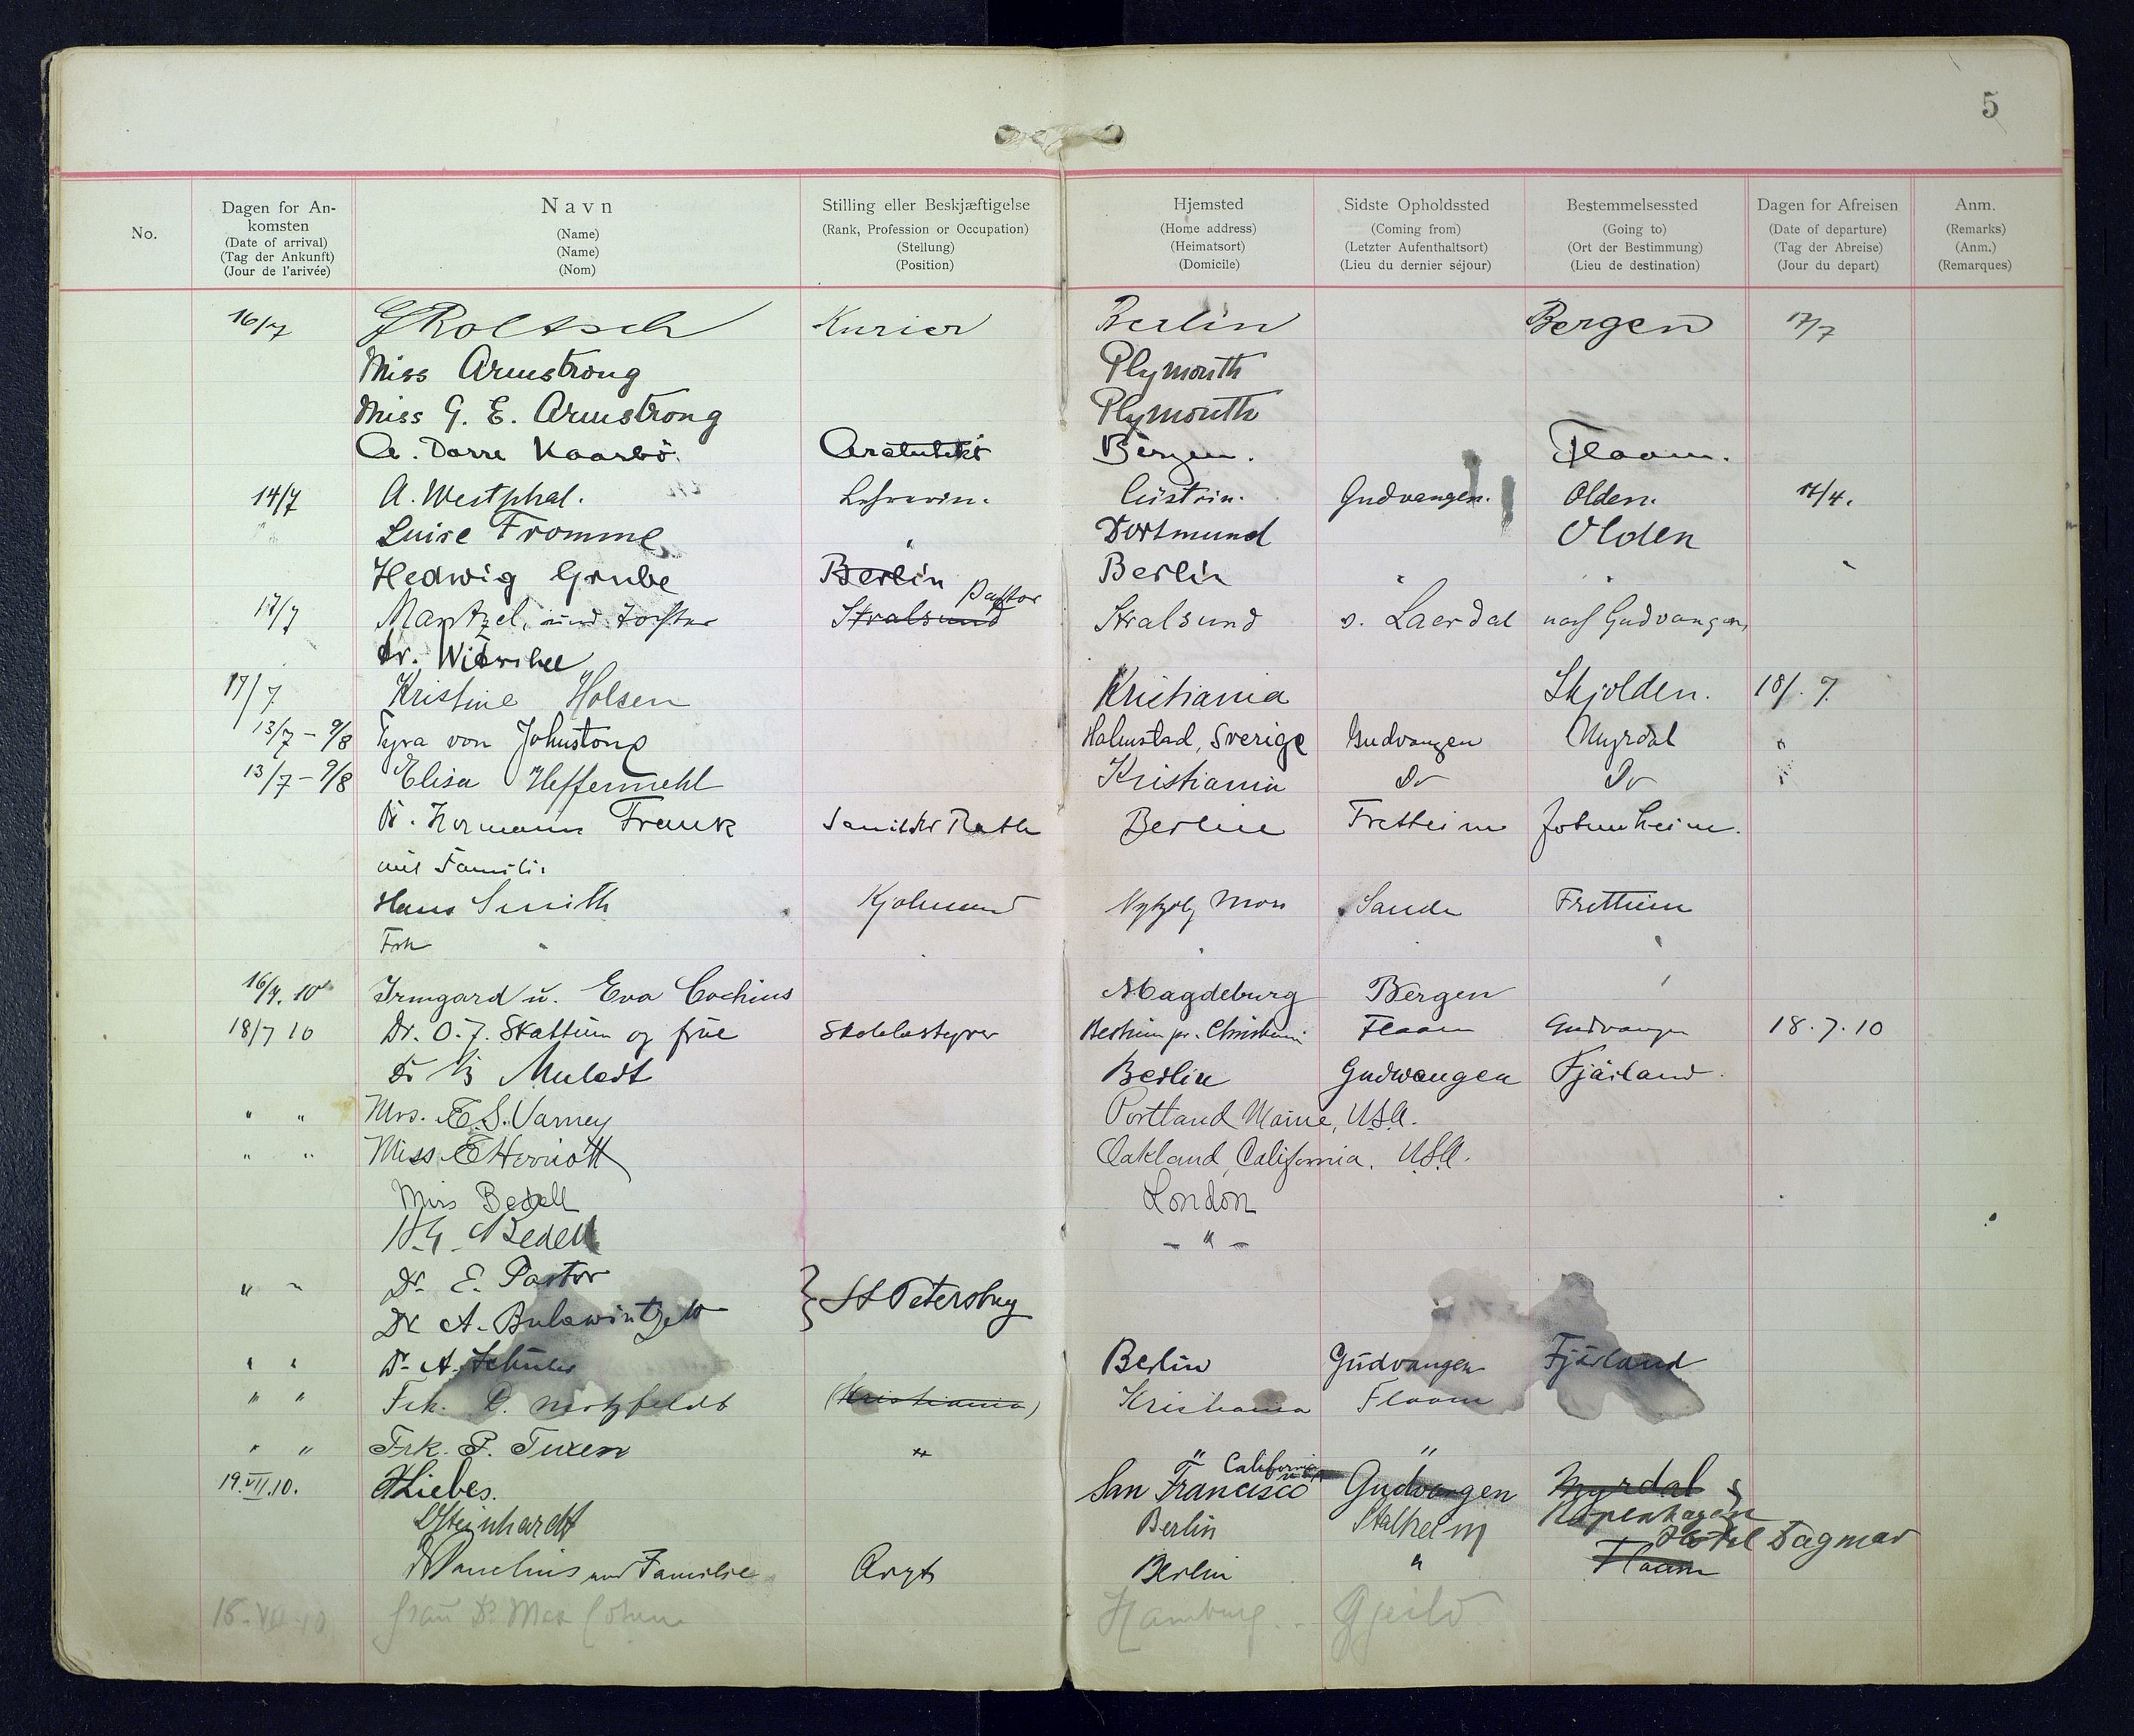 5
No.
Dagen for An-
komsten
(Date of arrival)
(Tag der Ankunft)
(Jour de l'arivée)
Navn
(Name)
(Name)
(Nom)
Stilling eller Beskjæftigelse
(Rank, Profession or Occupation)
(Stellung)
(Position)
Hjemsted
(Home address)
(Heimatsort)
(Domicile)
Sidste Opholdssted
(Coming from)
(Letzter Aufenthaltsort)
(Lieu du dernier séjour)
Bestemmelsessted
(Going to)
(Ort der Bestimmung)
(Lieu de destination)
Dagen for Afreisen
(Date of departure)
(Tag der Abreise)
(Jour du depart)
Anm.
(Remarks)
(Anm.)
(Remarques)
16/7 Kurier Berlin Bergen 17/7
Miss Armstrong Plymouth
Miss G. E. Armstrong Plymouth
A. Darre Kaarbö. Bergen. Flaam.
14/7 A. Westphal. Cüstrin. Gudvangen. Olden. 17/4.
Luise Fromme Dortmund Olden
Hedwig Grube Berlin Berlin "
17/7 Stralsund Pastor Stralsund v. Laerdal nach Gudvangen
Dr.
17/7 Kristine Holsen Kristiania Skjolden. 18/.7.
13/7 - 9/8 Tyra von Johnstone Halmstad, Sverige Gudvangen Myrdal "
13/7 - 9/8 Elisa Heffermehl Kristiania Do Do "
Dr. Hermann Frank Sanitäts Rath Berlin Fretheim
mit Familie
Hans Smith Sande Frettheim
Frk "
16/7. 10 Irmgard u. Eva Cochius Magdeburg Bergen
18/7 10 Dr. O. J. Skattum og frue Skolebestyrer Flaam Gudvangen 18.7.10
Berlin Gudwangen Fjärland.
" " Mrs. E. S. Varney Portland Maine, USA.
" " Miss E Herriott Oakland, California. USA.
Miss Bedell London
Bedell - " -
" " Dr. E. Pastor } St Petersburg
Dr A.
" " Dr. A. Berlin Gudvangen Fjärland
" " Frk. (Kristiania) Kristiania Flaam
" " Frk. P. Tuxen " " "
California
19.VII.10. Liebes. San Francisco Gudvangen Myrdal
Steinhardt Berlin Stalheim Kopenhagen
Hotel Dagmar
und Familie Arzt Berlin " Flaam
Frau Dr Max Hamburg